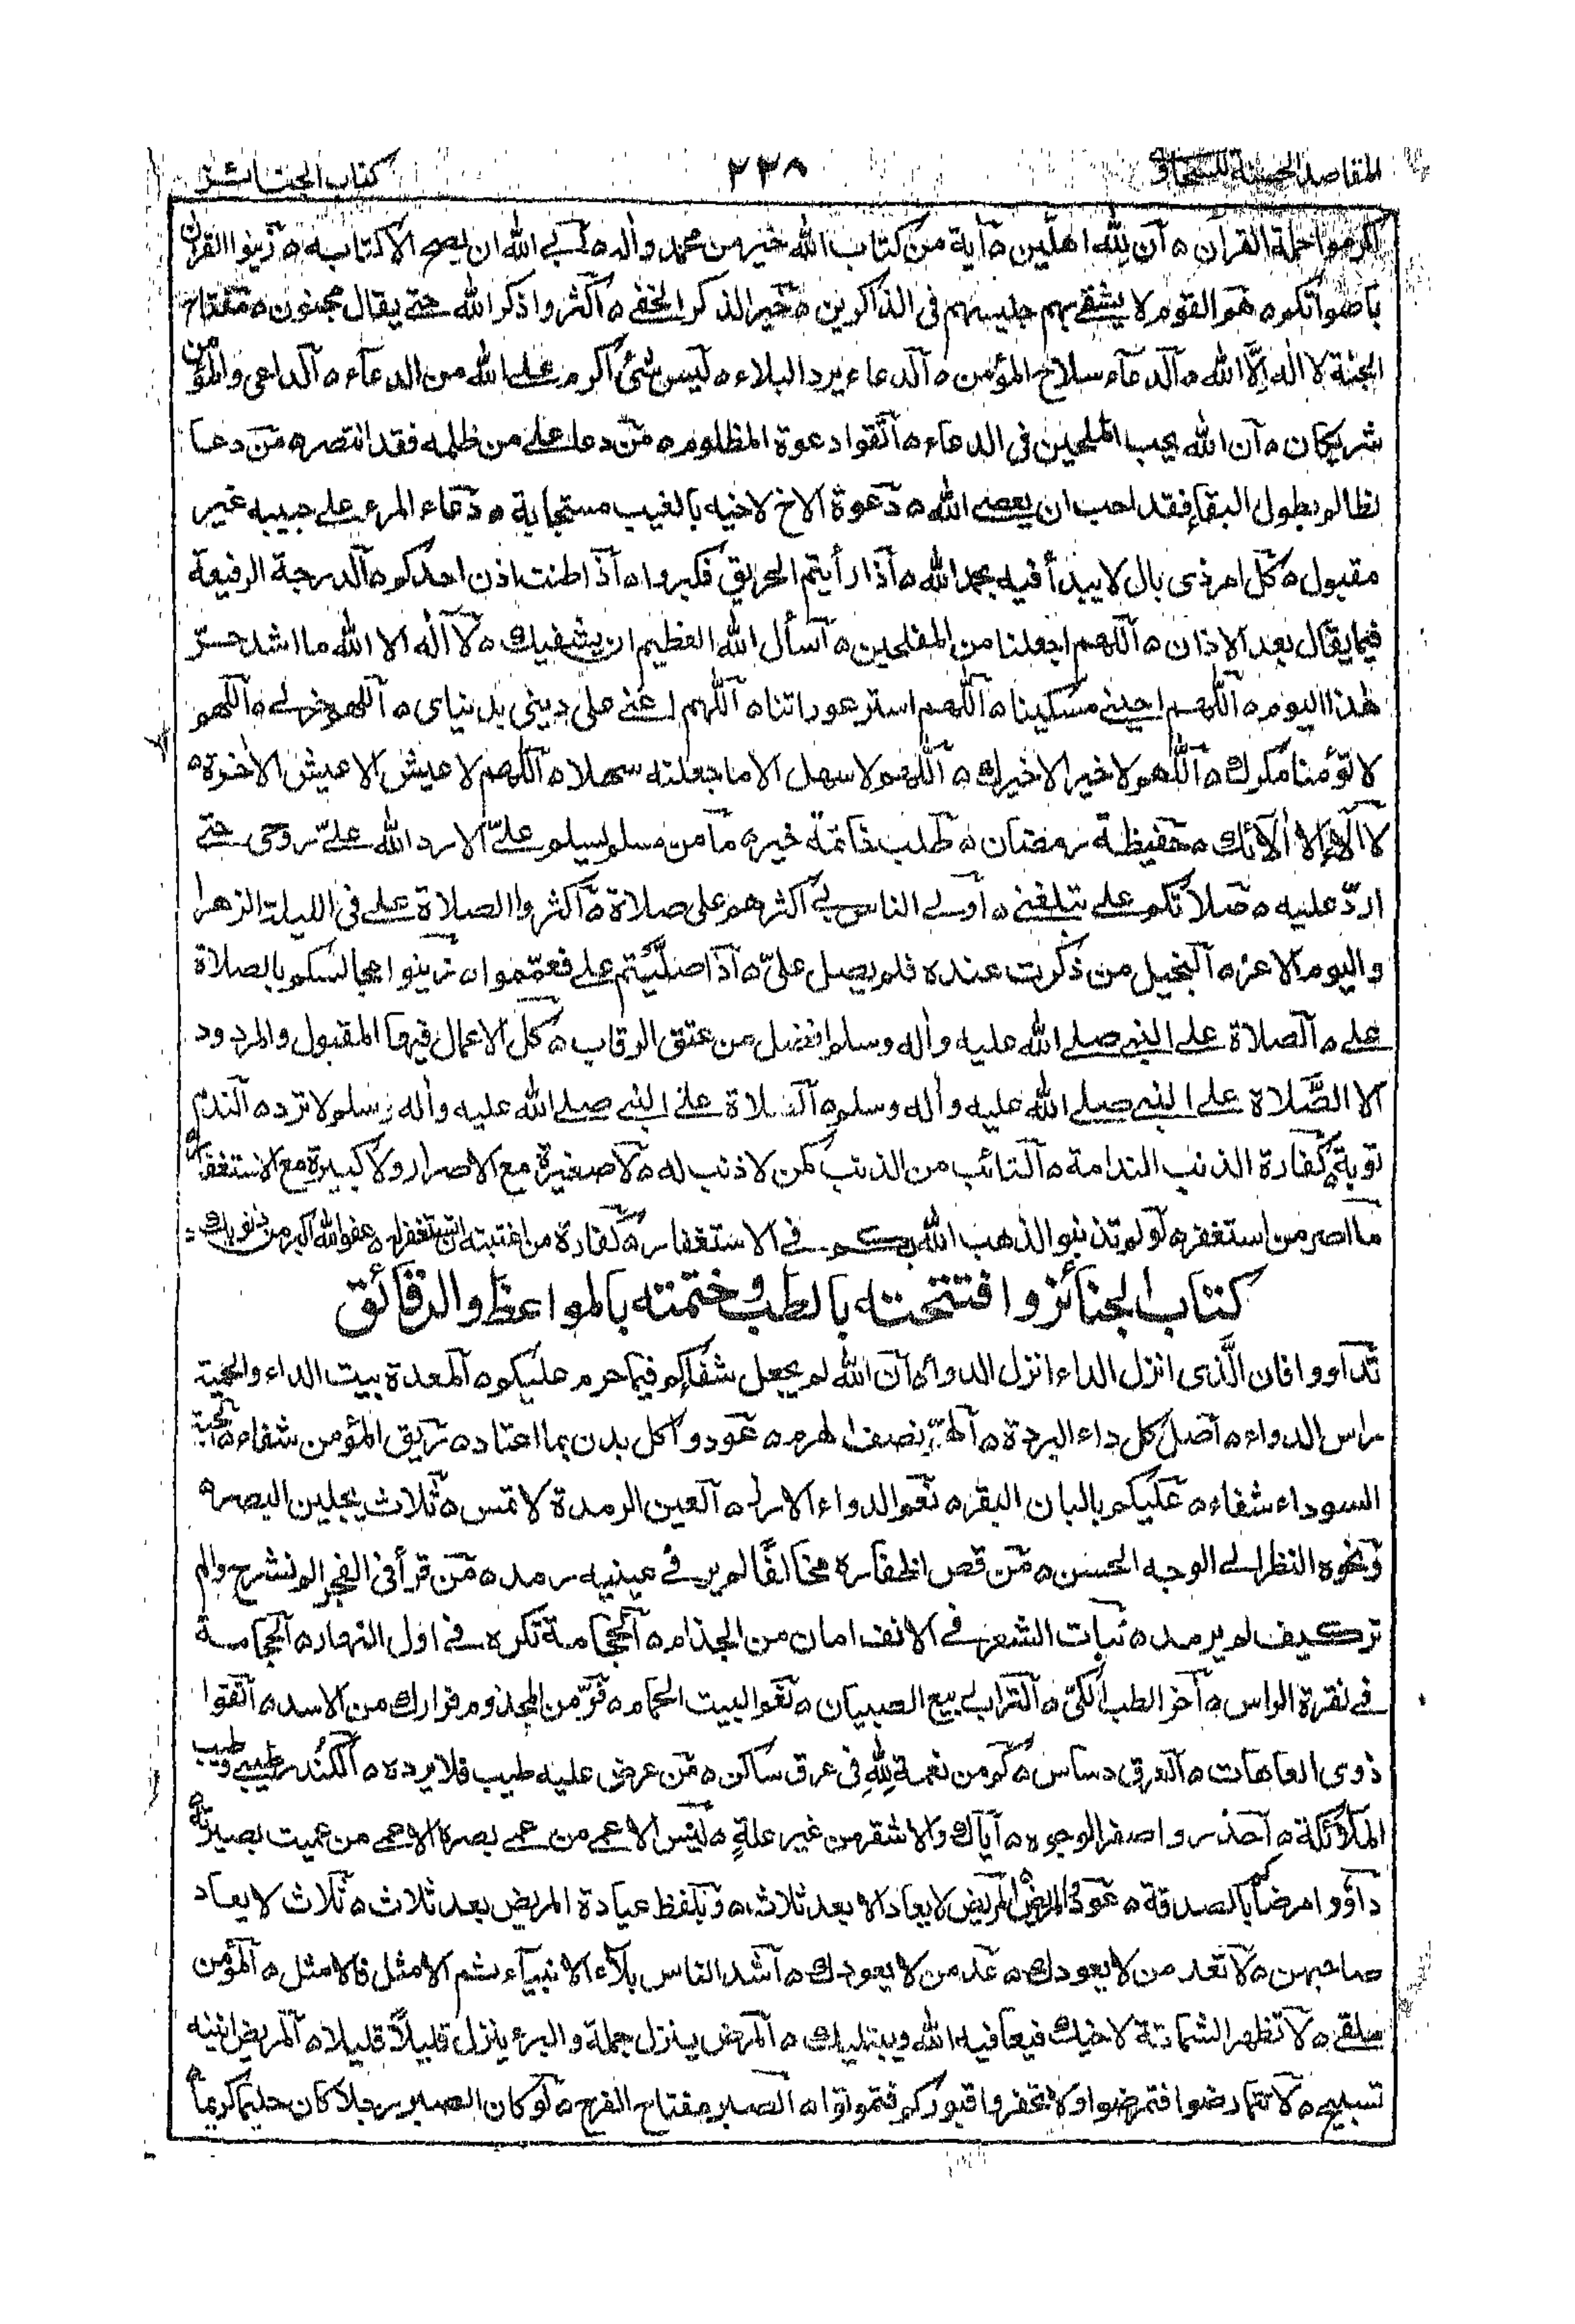 المقاصد الحسنة للسخاوى ٢٣٨ كتاب الجنائز
اكرموا حملة القران ه آن لله اهلين ه آية من كتاب الله خير من محمد واله ه آبى الله ان يصح الا كتابه ه زينوا القران
باصواتكم ه هم القوم لا يشقى بهم جليسهم فى الذاكرين ه خير الذكر الخفى ه آكثروا ذكر الله حتى يقال مجنون ه مفتاح
الجنة لا اله الا الله ه آلدعاء سلاح المؤمن ه آلدعاء يرد البلاء ه ليس شئ اكرم على الله من الدعاء ه آلداعى والمؤمن
شريكان ه آن الله يحب الملحين فى الدعاء ه آتقوا دعوة المظلوم ه من دعا على من ظلمه فقد انتصر ه من دعا
لظالم بطول البقاء فقد احب ان يعصى الله ه دعوة الاخ لاخيه بالغيب مستجابة ه دعاء المرء على حبيبه غير
مقبول ه كل امر ذى بال لا يبدأ فيه بحمد الله ه آذا رأيتم الحريق فكبروا ه آذا طنت اذن احدكم ه آلدرجة الرفيعة
فيما يقال بعد الاذان ه آللهم اجعلنا من المفلحين ه آسأل الله العظيم ان يشفيك ه لا آله الا الله ما اشد حر
هذا اليوم ه آللهم احينى مسكينا ه آللهم استر عوراتنا ه آللهم اعنى على دينى بدنياى ه آللهم خر لى ه آللهم
لا تؤمنا مكرك ه آللهم لا خير الا خيرك ه آللهم لا سهل الا ما جعلته سهلا ه آللهم لا عيش الا عيش الاخرة ه
لا آلاء الا آلائك ه حفيظة رمضان ه طلب خاتمة خير ه ما من مسلم يسلم على الا رد الله على روحى حتى
ارد عليه ه صلاتكم على تبلغنى ه آولى الناس بى اكثرهم على صلاة ه آكثروا الصلاة على فى الليلة الزهرا
واليوم الاغر ه آلبخيل من ذكرت عنده فلم يصل على ه آذا صليتم على فعمموا ه زينوا مجالسكم بالصلاة
على ه آلصلاة على النبى صلى الله عليه واله وسلم افضل من عتق الرقاب ه كل الاعمال فيها المقبول والمردود
الا الصلاة على النبى صلى الله عليه واله وسلم ه آلصلاة على النبى صلى الله عليه واله وسلم لا ترد ه آلندم
توبة ه كفارة الذنب الندامة ه آلتائب من الذنب كمن لا ذنب له ه لا صغيرة مع الاصرار ولا كبيرة مع الاستغفار
ما اصر من استغفر ه لو لم تذنبوا لذهب الله بكم فى الاستغفار ه كفارة من اغتبته ان تستغفر له ه عفو الله اكبر من ذنوبك
كتاب الجنائز وافتتحته بالطب وختمته بالمواعظ والرقائق
تداووا فان الذى انزل الداء انزل الدواء ه آن الله لم يجعل شفاكم فيما حرم عليكم ه آلمعدة بيت الداء والحمية
راس الدواء ه آصل كل داء البردة ه آلهم نصف الهرم ه عودوا كل بدن بما اعتاد ه ريق المؤمن شفاء ه آلحبة
السوداء شفاء ه عليكم بالبان البقر ه نعم الدواء الارز ه آلعين الرمدة لا تمس ه ثلاث يجلين البصر ه
ونحوه النظر الى الوجه الحسن ه من قص اظفاره مخالفا لم ير فى عينيه رمد ه من قرأ فى الفجر الم نشرح والم
تر كيف لم يرمد ه نبات الشعر فى الانف امان من الجذام ه آلحجامة تكره فى اول النهار ه آلحجامة
فى نقرة الراس ه آخر الطب الكى ه آلتراب ربيع الصبيان ه نعم البيت الحمام ه فر من المجذوم فرارك من الاسد ه آتقوا
ذوى العاهات ه آلعرق دساس ه كم من نعمة لله فى عرق ساكن ه من عرض عليه طيب فلا يرده ه آلكندر طيبى وطيب
الملائكة ه آحذروا صفر الوجوه ه آياك والاشقر من غير علة ه ليس الاعمى من عمى بصره الاعمى من عميت بصيرته ه
داووا مرضاكم بالصدقة ه عودوا المريض ه آلمريض لا يعاد الا بعد ثلاث ه وبلفظ عيادة المريض بعد ثلاث ه ثلاث لا يعاد
صاحبهن ه لا تعد من لا يعودك ه عد من لا يعودك ه آشد الناس بلاء الانبياء ثم الامثل فالامثل ه آلمؤمن
ملقى ه لا تظهر الشماتة لاخيك فيعافيه الله ويبتليك ه آلمرض ينزل جملة والبرء ينزل قليلا قليلا ه آلمريض انينه
تسبيح ه لا تتمارضوا فتمرضوا ولا تحفروا قبوركم فتموتوا ه آلصبر مفتاح الفرج ه لو كان الصبر رجلا كان حليما كريما